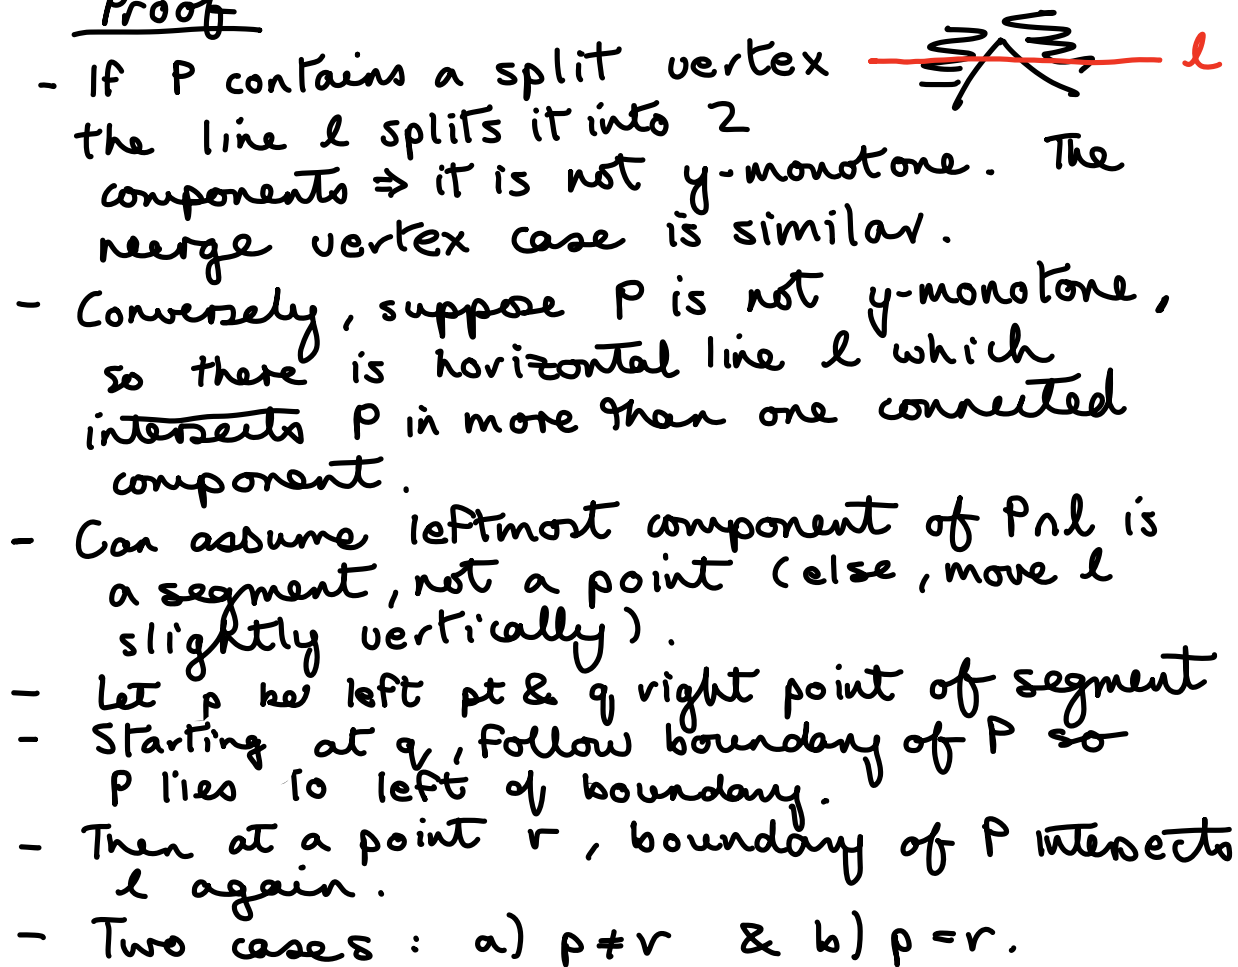 Proof
- If P contains a split vertex l
the line l splits it into 2
components ⇒ it is not y-monotone. The
merge vertex case is similar.
- Conversely, suppose P is not y-monotone,
so there is horizontal line l which
intersects P in more than one connected
component.
- Can assume leftmost component of P∩l is
a segment, not a point (else, move l
slightly vertically).
- Let p be left pt & q right point of segment
- Starting at q, follow boundary of P so
P lies to left of boundary.
- Then at a point r, boundary of P intersects
l again.
- Two cases : a) p ≠ r & b) p = r.